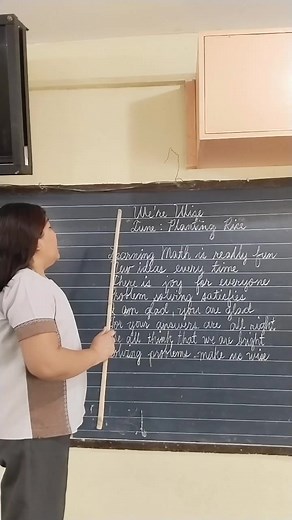 We're Wise
Tune: Planting Rice
Learning Math is really fun
New ideas every time
There is joy for everyone
Problem solving satisfies
I am glad, you are glad
For your answers are all right
We all think that we are bright
Solving problems make us wise